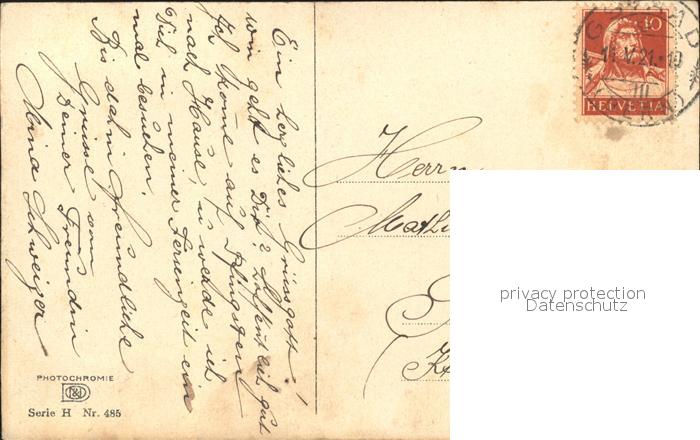 Ein herzliches Grüssgott!
wie geht es Dir? Hoffentlich gut
Ich komme auf Pfingsten
nach Hause, u. werde ich
Dich in meiner Ferienzeit ein
mal besuchen.
Bis dahin freundliche
Grüsse von
Deiner Freundin
Mina Schweizer
PHOTOCHROMIE
Serie H Nr. 485
10
HELVETIA
11.V.21.-10
III
Herrn
privacy protection
Datenschutz